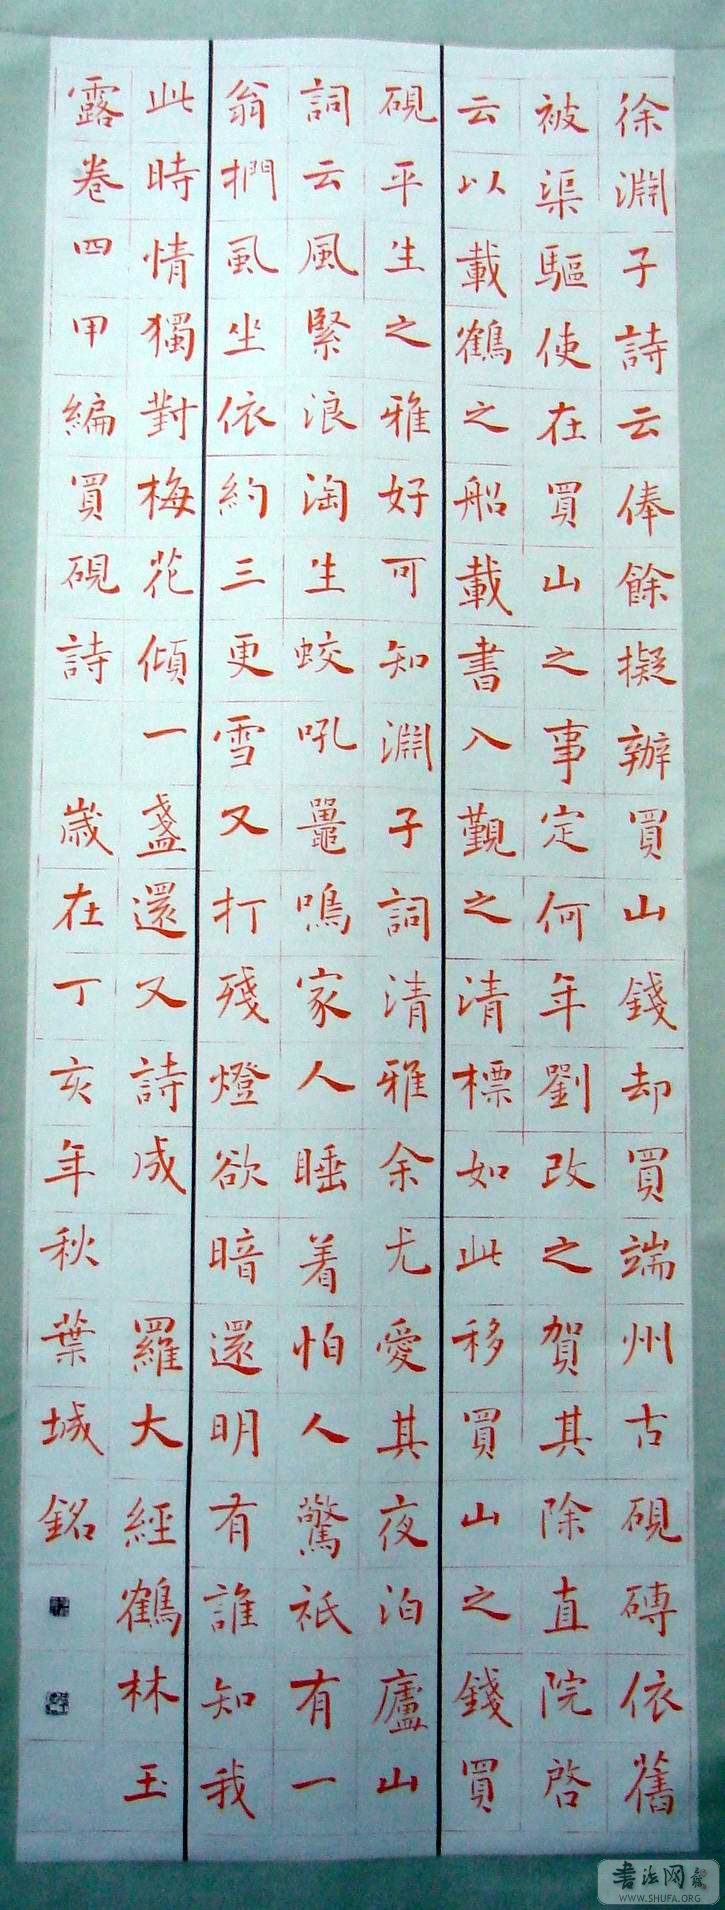 徐淵子詩云俸餘擬辦買山錢却買端州古硯磚依舊
被渠驅使在買山之事定何年劉改之賀其除直院啓
云以載鶴之船載書入覲之清標如此移買山之錢買
硯平生之雅好可知淵子詞清雅余尤愛其夜泊廬山
詞云風緊浪淘生蛟吼鼉鳴家人睡着怕人驚祇有一
翁捫虱坐依約三更雪又打殘燈欲暗還明有誰知我
此時情獨對梅花傾一盞還又詩成 羅大經鶴林玉
露卷四甲編買硯詩 歲在丁亥年秋葉城銘
书法网
WWW.SHUFA.ORG